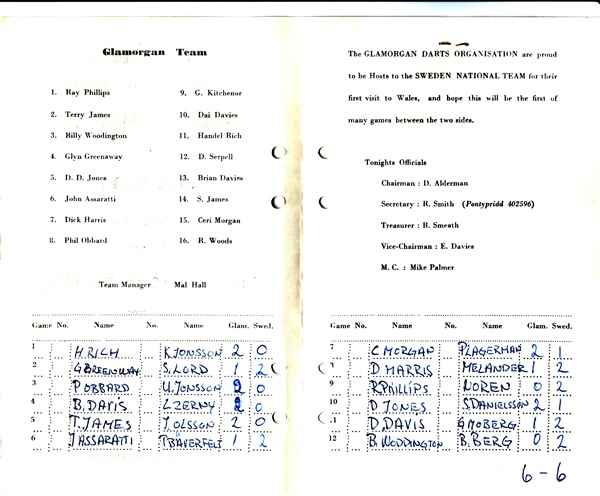 Glamorgan Team
1. Ray Phillips
2. Terry James
3. Billy Woodington
4. Glyn Greenaway
5. D. D. Jones
6. John Assaratti
7. Dick Harris
8. Phil Obbard
9. G. Kitchenor
10. Dai Davies
11. Handel Rich
12. D. Serpell
13. Brian Davies
14. S. James
15. Ceri Morgan
16. R. Woods
Team Manager Mal Hall
Game No. Name No. Name Glam. Swed.
1 H. RICH K JONSSON 2 0
2 G GREENWAY S. LORD 1 2
3 P OBBARD U. JONSSON 2 0
4 B. DAVIS L ZERNY 2 0
5 T. JAMES J. OLSSON 2 0
6 J ASSARATTI T BÄVERFELT 1 2
The GLAMORGAN DARTS ORGANISATION are proud
to be Hosts to the SWEDEN NATIONAL TEAM for their
first visit to Wales, and hope this will be the first of
many games between the two sides.
Tonights Officials
Chairman : D. Alderman
Secretary : R. Smith (Pontypridd 402596)
Treasurer : B. Smeath
Vice-Chairman : E. Davies
M. C. : Mike Palmer
Game No. Name No. Name Glam. Swed.
7 C MORGAN P. LAGERMAN 2 1
D HARRIS MELANDER 1 2
9 R. PHILLIPS NOREN 0 2
10 D JONES S. DANIELSSON 2 1
11 D. DAVIS G MOBERG 1 2
12 B. WODDINGTON B. BERG 0 2
6 - 6